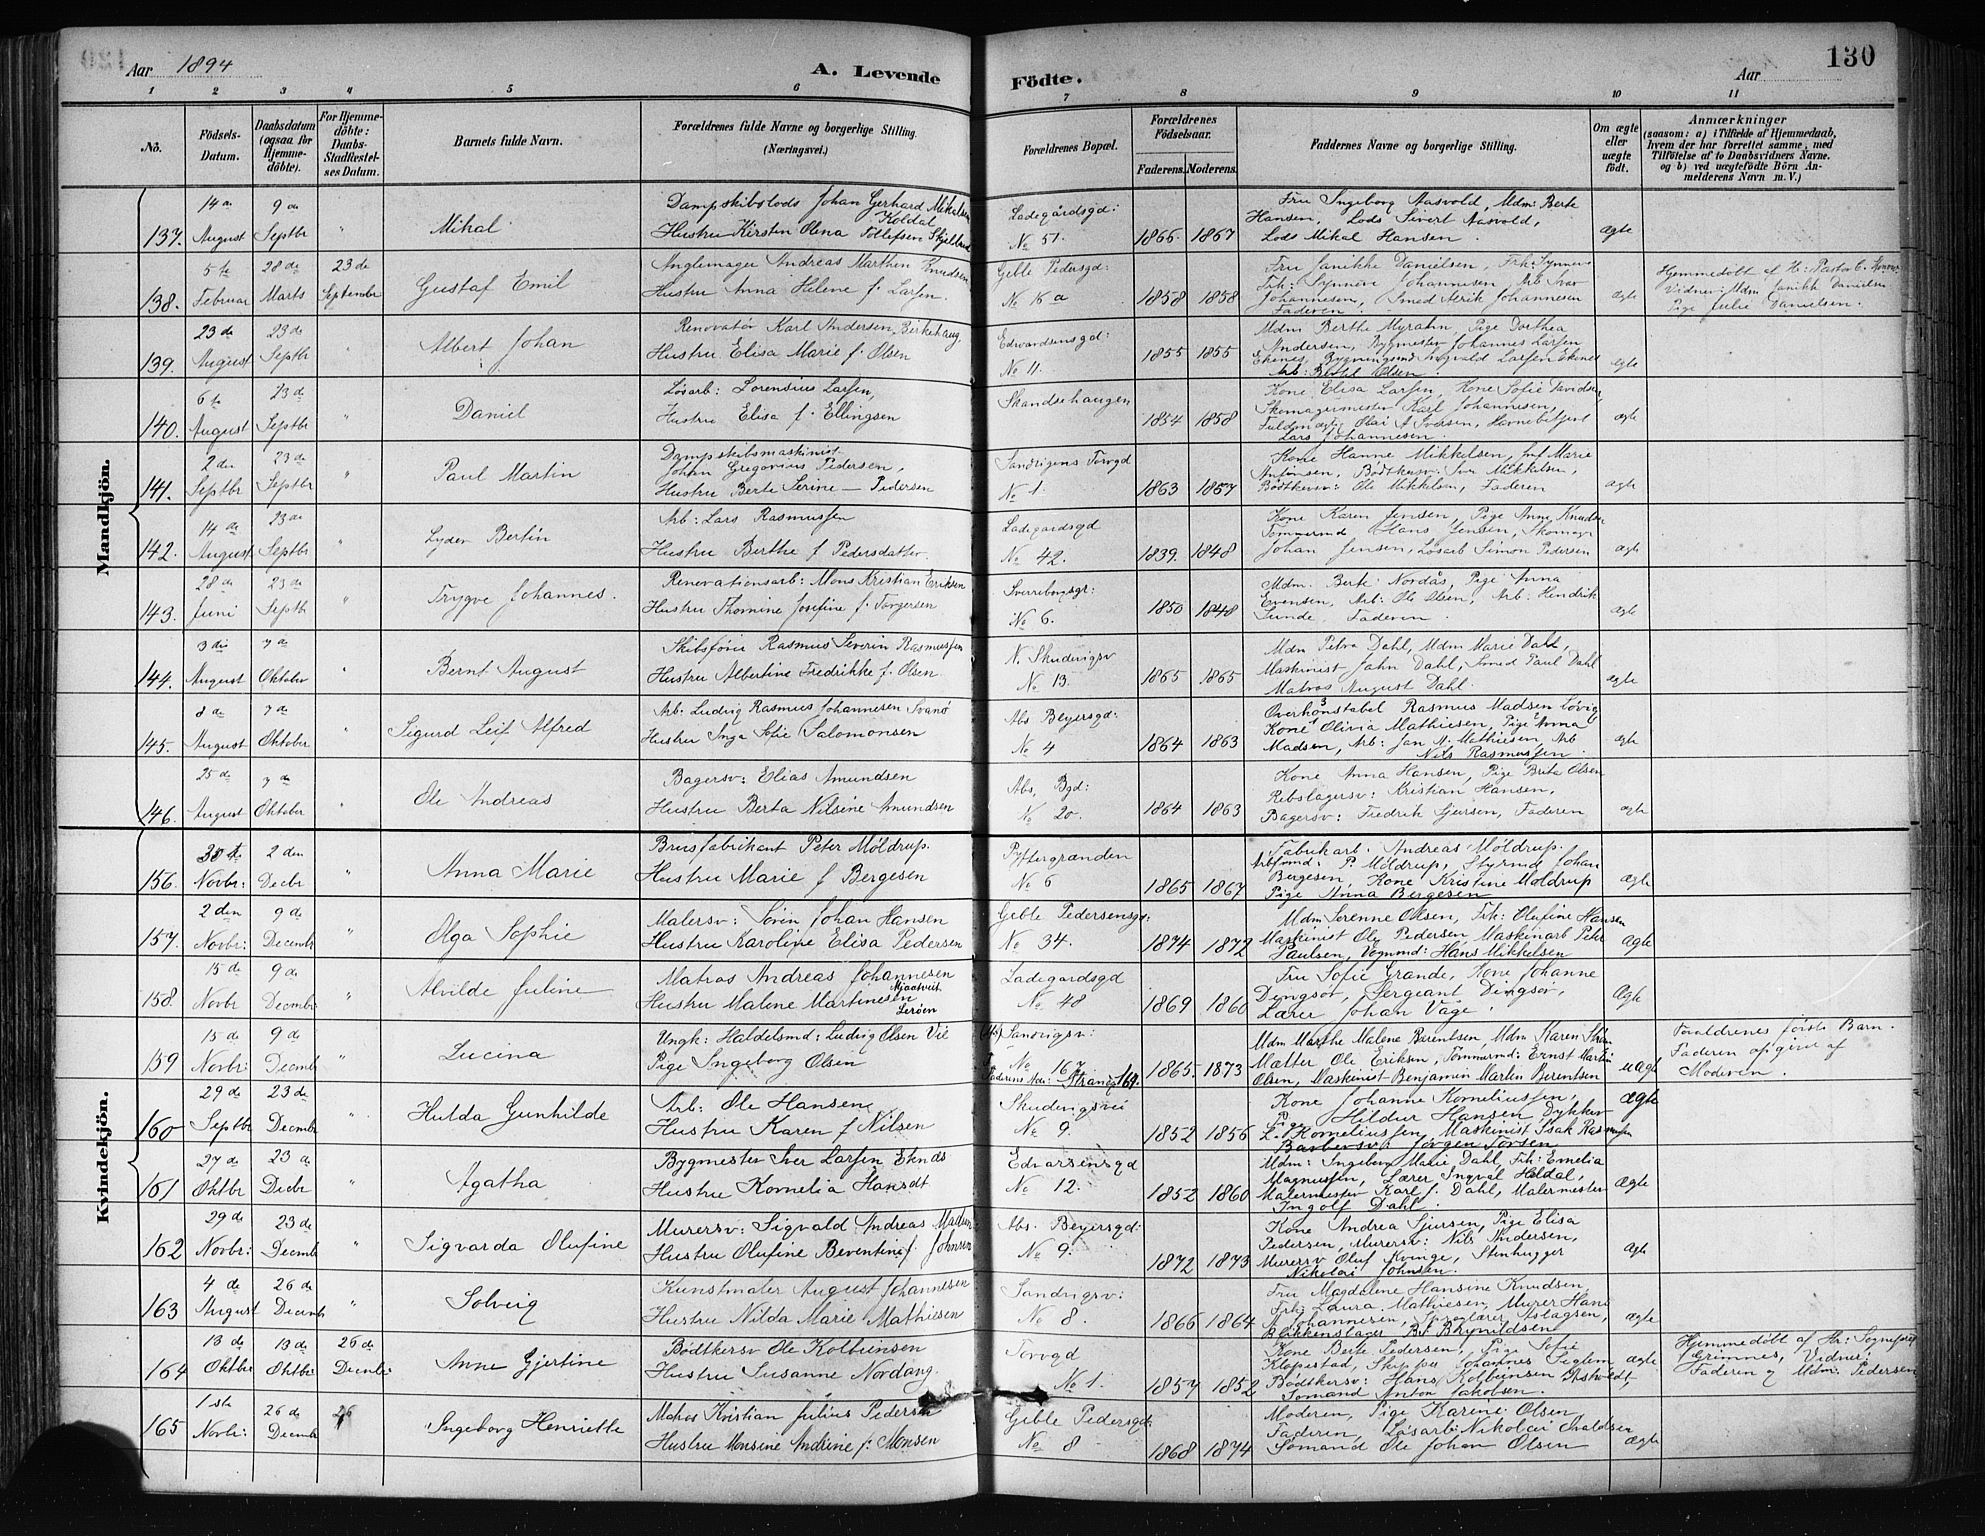 Aar 1894
A. Levende
Födte.
Aar
130
1 2 3 4 5 6 7 8 9 10 11
No.
Födsels-Datum.
Daabsdatum (ogsaa for Hjemmedöbte).
For Hjemmedöbte: Daabs-Stadfæstelses Datum.
Barnets fulde Navn.
Forældrenes fulde Navne og borgerlige Stilling.
(Næringsvei.)
Forældrenes Bopæl.
Forældrenes Födselsaar.
Faderens. Moderens.
Faddernes Navne og borgerlige Stilling.
Om ægte eller uægte födt.
Anmærkninger
(saasom: a) i Tilfælde af Hjemmedaab, hvem der har forrettet samme, med Tilföielse af to Daabsvidners Navne, og b) ved uægtefödte Börn Anmelderens Navn m. V.)
Mandkjön.
137. 14 de August 9 de Septbr " Mikal
Dampskibslods Johan Gerhard Mikalsen Koldal
Hustru Kirsten Olena Tollefsen
Ladegårdsgd: No 51. 1866. 1867
Fru Ingeborg Aasvold, Mdm: Berte
Hansen, Lods Sivert Aasvold,
Lods Mikal Hansen. ægte
138. 5 te Februar 28 de Marts 23 de Septembr Gustaf Emil
Andreas Marthin Knudsen
Hustru Anna Helene f. Larsen.
Geble Pedersgd: 1858 1858
Fru Janikke Danielsen, Frk: Synnøve
Johannesen, Smed Johannesen
Faderen. ægte
Hjemmedöbt af Hr: Pastor C.
Vidner: Mdm Janikke Danielsen
Pige Julie Danielsen.
139. 23 de August 23 de Septbr " Albert Johan
Renovatör Karl Andersen, Birkehaug
Hustru Elisa Marie f. Olsen
Edvardsensgd: No 11. 1855 1855
Mdm Berthe Myrahn, Pige Dorthea
Andersen, Bygmester Johannes Larsen
Ekenes, Sigvald Larsen Ekenes
Arb: Olsen. ægte
140. 6 te August 23 de Septbr " Daniel
Lösarb: Lorensius Larsen,
Hustru Elisa f. Ellingsen
Skandsehaugen 1854 1858
Kone Elisa Larsen, Kone Sofie Davidsen,
Skomagermester Karl Johannesen,
Olai A Iversen, Havnebetjent
Lars Johannesen. ægte
141. 2 den Septbr 23 de Septbr " Paul Martin
Dampskibsmaskinist
Johan Gregorius Pedersen,
Hustru Berte Serine — Pedersen
Sandvigens Torvgd No 1. 1863 1857
Kone Hanne Mikkelsen, Marie
Antonsen, Bödtkersv: Iver Mikkelsen,
Bödtkersv: Ole Mikkelsen, Faderen ægte
142. 14 de August 23 de Septbr " Lyder Bertin
Arb: Lars Rasmussen
Hustru Berthe f Pedersdatter
Ladegardsgd No 42. 1839. 1848
Kone Karen Jensen, Pige Anne Knudsen
Tömmermd Hans Jensen, Skomagr
Johan Jensen, Lösarb Simon Pedersen ægte
143. 28 de Juni 23 de Septbr " Trygve Johannes.
Renovationsarb: Mons Kristian Eriksen
Hustru Thomine Josefine f. Torgersen
Sverreborgsgt: No 6. 1850 1848
Mdm. Berte Nordås, Pige Anna
Evensen, Arb: Ole Olsen, Arb: Hendrik
Sunde, Faderen. ægte
144. 3 die August 7 de Oktober " Bernt August
Skibsförer Rasmus Severin Rasmussen
Hustru Albertine Fredrikke f. Olsen.
N. Skudevigsv No 13. 1865 1865
Mdm Petra Dahl, Mdm Marie Dahl,
Maskinist John Dahl, Smed Paul Dahl
Matros August Dahl. ægte
145. 8 de August 7 de Oktober " Sigurd Leif Alfred
Arb: Ludvig Rasmus Johannesen Svanö
Hustru Inga Sofie Salomonsen
Abs Beyersgd: No 4 1864 1863
Overkonstabel Rasmus Madsen Lövig
Kone Olivia Mathiesen, Pige Anna
Madsen, Arb: Jan M. Mathiesen, Arb
Nils Rasmussen. ægte
146. 25 de August 7 de Oktober " Ole Andreas
Bagersv: Elias Amundsen
Hustru Berta Nilsine Amundsen
Abs, Bgd: No 20. 1864 1863
Kone Anna Hansen, Pige Brita Olsen
Rebslagersv: Kristian Hansen,
Bagersv: Fredrik Gjersen, Faderen ægte
Kvindekjön.
156. 30 te Novbr: 2 den Decbr " Anna Marie
Brusfabrikant Peter Möldrup.
Hustru Marie f Bergesen
Pyttergrænden No 6 1865 1867
Fabrikarb. Andreas Möldrup.
Arbfmd: P. Möldrup, Styrmd Johan
Bergesen, Kone Kristine Möldrup
Pige Anna Bergesen ægte
157. 2 den Novbr: 9 de Decembr " Olga Sophie
Malersv: Sörin Johan Hansen
Hustru Karoline Elisa Pedersen
Geble Pedersensgd: No 34. 1874 1872
Mdm Serenne Olsen, Frk: Olufine Hansen
Maskinist Ole Pedersen Maskinarb Peter
Paulsen, Vognmd: Hans Mikkelsen ægte
158. 15 de Novbr 9 de Decmbr " Alvilde Juline
Matros Andreas Johannesen Mjaatveit
Hustru Malene Martinesen Leröen
Ladegardsgd No 48 1869 1860
Fru Sofie Grande, Kone Johanne
Dingsör, Sergeant Dingsör,
Lærer Johan Våge. Ægte
159 15 de Novbr: 9 de Decmb " Lucina
Ungk: Haldelsmd: Ludvig Olsen Vie
Pige Ingeborg Olsen
Sandvigsv: No 167 Faderens Adr: Strandg 164. 1865. 1873
Mdm Marthe Malene Barentsen Mdm Karen
Mætter Ole Eriksen, Tömmermd: Ernst Martin
Olsen, Maskinist Benjamin Martin Berentsen uægte
Foraldrenes förste Barn.
Faderen opgivet af
Moderen.
160 29 de Septbr 23 de Decmbr " Hulda Gunhilde
Arb: Ole Hansen
Hustru Karen f Nilsen
Skudevigsvei No 9. 1852 1856
Kone Johanne Korneliussen,
Pige Hildur Hansen Dykker
L. Korneliussen, Maskinist Isak Rasmussen
Barbersv: Jörgen Torsen ægte
161 27 de Oktbr 23 de Decbr " Agatha
Bygmester Iver Larsen Eknes
Hustru Kornelia Hansdt
Edvarsensgd No 12. 1852 1860
Mdm: Ingeborg Marie Dahl, Frk: Emelia
Magnussen, Lærer Ingval Heldal,
Malermester Karl J. Dahl, Malermester
Ingolf Dahl. ægte
162 29 de Novbr: 23 de Decmb " Sigvarda Olufine
Murersv: Sigvald Andreas Madsen
Hustru Olufine Beventine f. Johnsen
Abs. Beyersgd: No 9. 1872 1873
Kone Andrea Sjursen, Pige Elisa
Pedersen, Murersv: Nils Andersen,
Murersv Oluf Kvinge, Stenhugger
Nikolai Johnsen. ægte
163 4 de August 26 de Decmb " Solveig
Kunstmaler August Johannesen
Hustru Nilda Marie Mathiesen
Sandvigsv: No 8. 1866 1864
Fru Magdalene Hansine Knudsen
Frk: Laura Mathiesen, Murer Hans
Johannesen, Aslagsen,
Blikkenslager Brynildsen ægte
164 13 de Oktbr 13 de Oktbr 26 de Decmbr: Anne Gjertine
Bödtkersv Ole Kolbeinsen
Hustru Susanne Nordang
Torvgd No 1. 1857 1852
Kone Berte Pedersen, Pige Sofie
Klopestad, Skipper Johannes Siglem
Bödtkersv: Hans Kolbeinsen
Sömand Anton Jakobsen. ægte
Hjemmedöbt af Hr: Sognepræst
Grimnes, Vidner:
Faderen og Mdm: Pedersen
165 1 ste Novbr: 26 de Decmb 26 Ingeborg Henriette
Matros Kristian Julius Pedersen
Hustru Monsine Andrine f. Monsen
Geble Pedersgd: No 8 1868 1874
Moderen, Pige Karine Olsen
Faderen, Lösarb: Nikolai
Sömand Ole Johan Olsen ægte